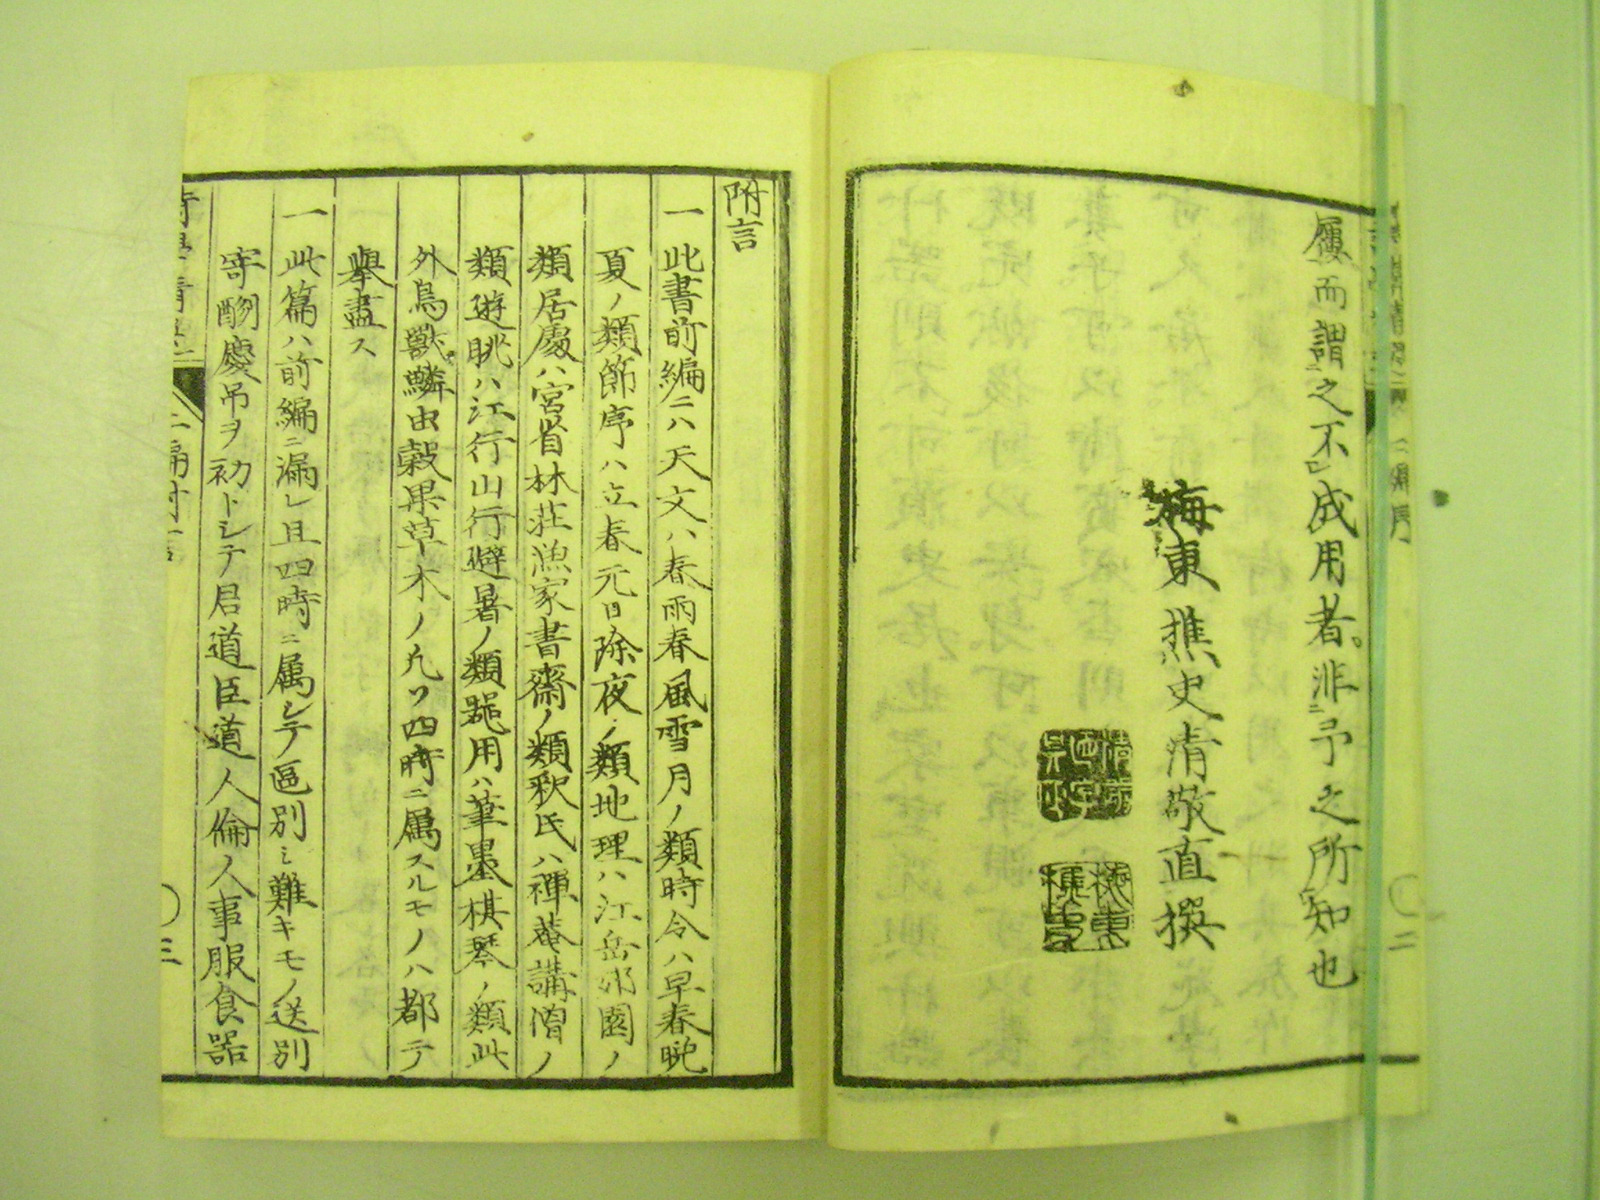 履而謂之不成用者非予之所知也
梅東樵史清敬直撰
附言
一此書前編ニハ天文ハ春雨春風雪月ノ類時令ハ早春晩
夏ノ類節序ハ立春元日除夜ノ類地理ハ江岳郊園ノ
類居處ハ宮省林荘漁家書齋ノ類釈氏ハ禅菴講僧ノ
類遊眺ハ江行山行避暑ノ類器用ハ筆墨棋琴ノ類此
外鳥獣鱗虫穀果草木ノ凡ソ四時ニ属スルモノハ都テ
舉盡ス
一此篇ハ前編ニ漏レ且四時ニ属シテ區別シ難キモノ送別
寄酬慶吊ヲ初トシテ君道臣道人倫人事服食器
二編附言
三